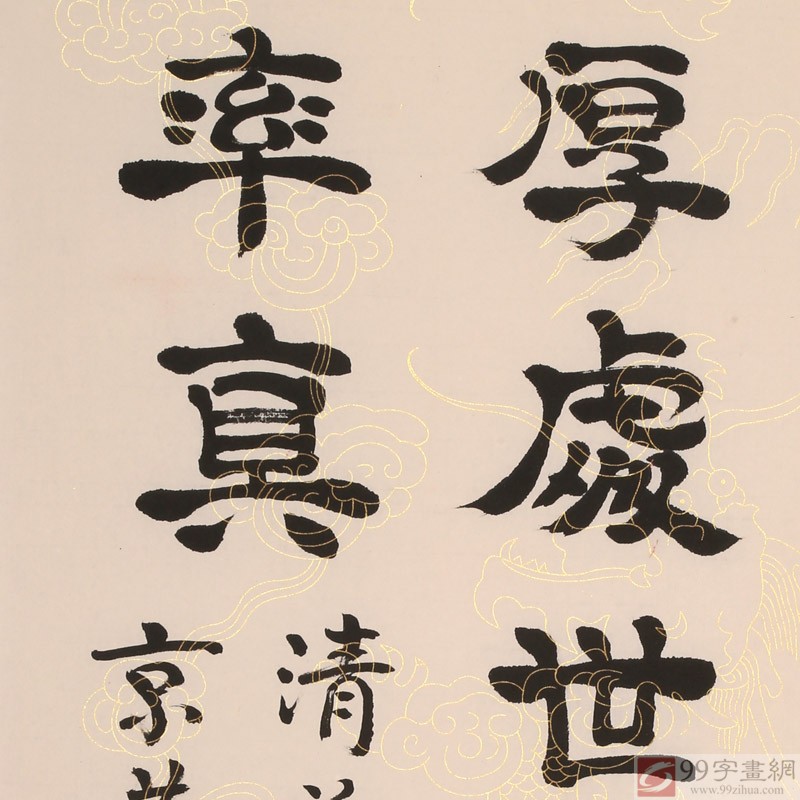 厚處世
率真
清
京
99字畫網
www.99zihua.com